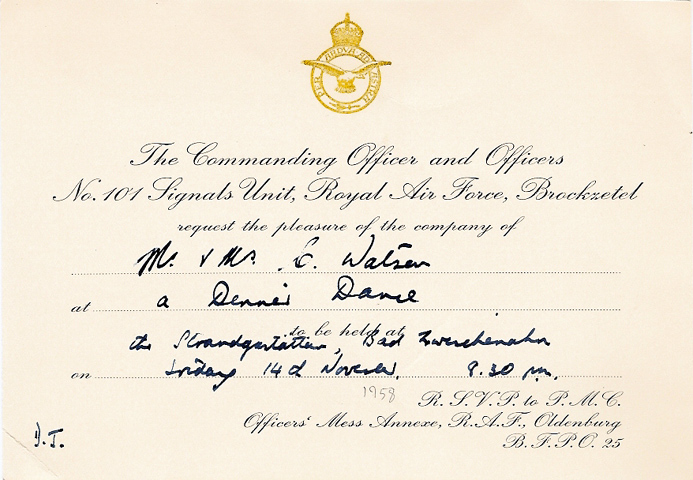 PER ARDUA AD ASTRA
The Commanding Officer and Officers
No. 101 Signals Unit, Royal Air Force, Brockzetel
request the pleasure of the company of
Mr. & Mrs. E. Watson
at a Dinner Dance
to be held at
the Strandgaststätten, Bad Zwischenahn
on Friday 14th November. 8.30 pm.
1958
R.S.V.P. to P.M.C.
Officers' Mess Annexe, R.A.F., Oldenburg
B.F.P.O. 25
D.J.